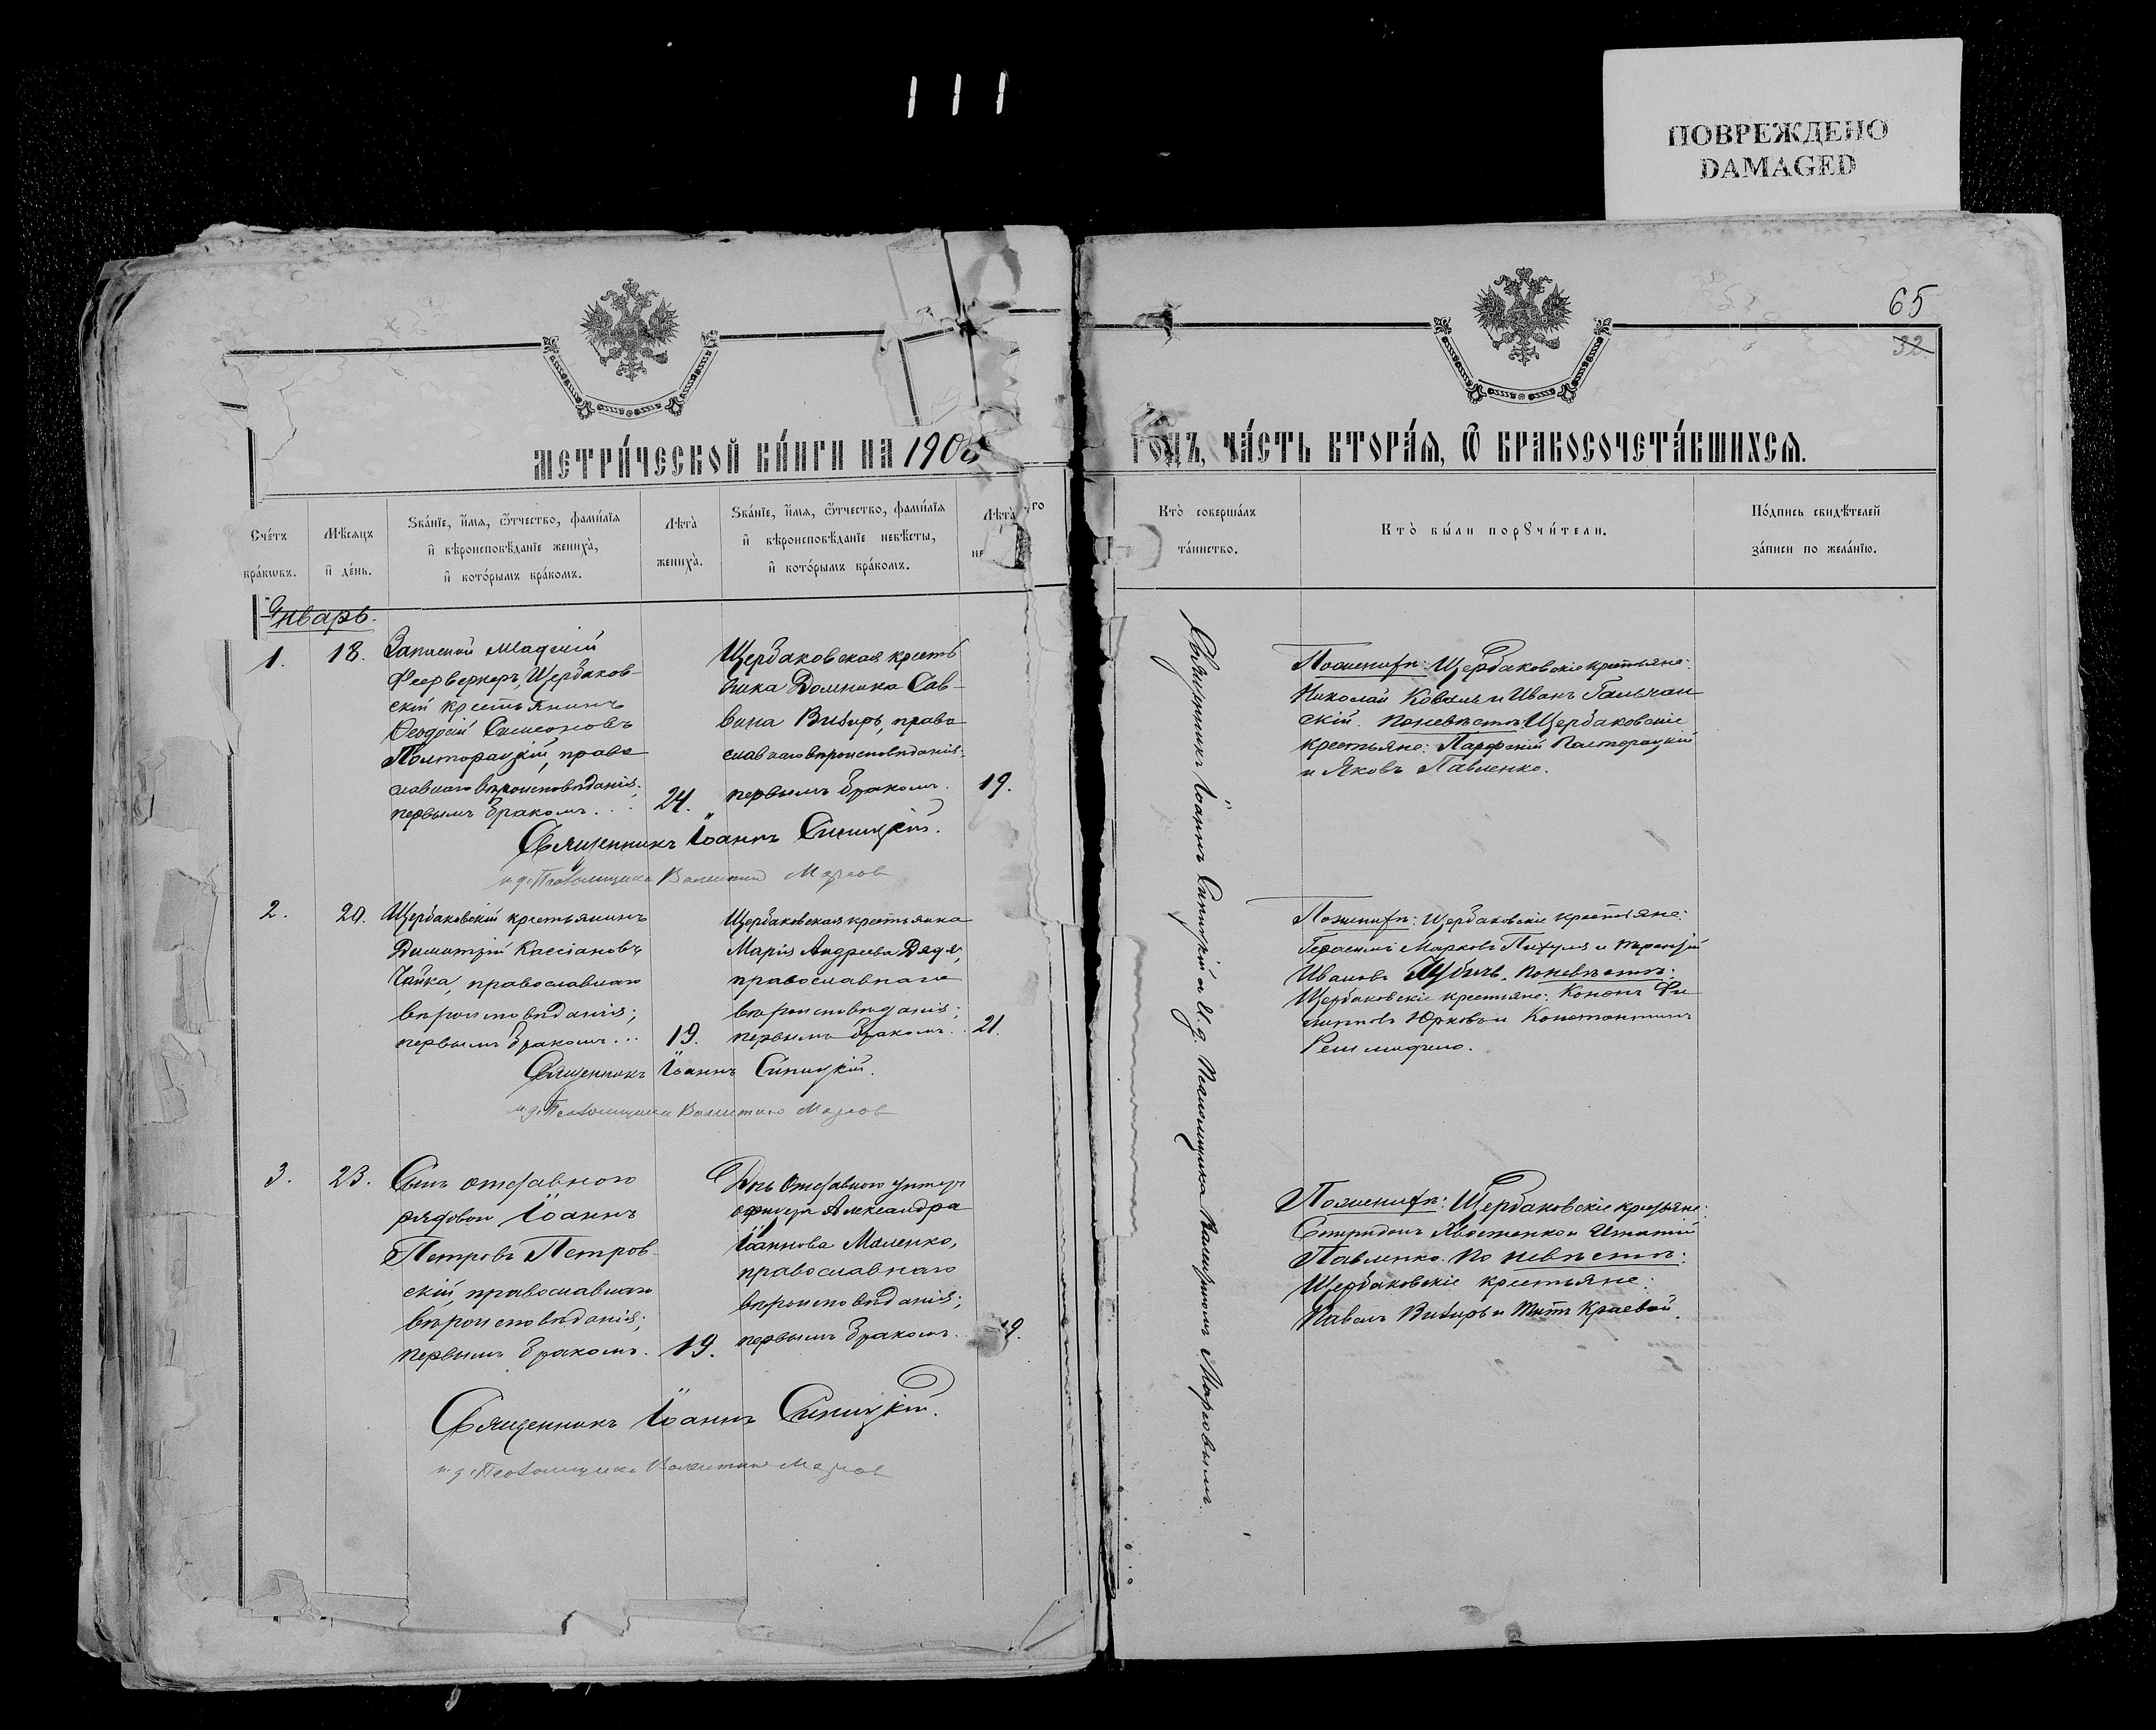 ПОВРЕЖДЕНО
DAMAGED
65
32
МЕТРИ́ЧЕСКОЙ КНИ́ГИ НА 1905
ГОДЪ, ЧА́СТЬ ВТОРА́Я, Ѿ БРАКОСОЧЕТА́ВШИХСЯ.
Сче́тъ
бра́ковъ.
Мѣ́сяцъ
и҆ де́нь.
Зва́нїе, и҆́мя, ѻ҆́тчество, фами́лїя
и҆ вѣроисповѣ́данїе жениха̀,
и҆ кото́рымъ бра́комъ.
Лѣта̀
жениха̀.
Зва́нїе, и҆́мя, ѻ҆́тчество, фами́лїя
и҆ вѣроисповѣ́данїе невѣ́сты,
и҆ кото́рымъ бра́комъ.
Лѣта̀
не
Кто̀ соверша́лъ
та́инство.
Кто̀ бы́ли порꙋчи́тели.
По́дпись свидѣ́телей
за́писи по жела́нїю.
Январь.
1.
18.
Запасной младшій
Фейерверкеръ, Щербаков-
скій крестьянинъ
Ѳеодосій Симеоновъ
Полторацкій, право
славнаго вѣроисповѣданія;
первымъ бракомъ.
24.
Щербаковская кресть
янка Домника Сав-
вина Визиръ, право
славнаго вѣроисповѣданія;
первымъ бракомъ.
19.
Священникъ Іоаннъ Синицкій.
и. д. Псаломщика Валентин
Поженихѣ: Щербаковскіе крестьяне:
Николай Коваль и Иванъ Гальчан
скій. Поневѣстѣ: Щербаковскіе
крестьяне: Парфеній Полторацкій
и Яковъ Павленко.
2.
20.
Щербаковскій крестьянинъ
Димитрій Кассіановъ
Чайка, православнаго
вѣроисповѣданія;
первымъ бракомъ...
19.
Щербаковская крестьянка
Марія Андреева Дядя,
православнаго
вѣроисповѣданія;
первымъ бракомъ..
21.
Священникъ Іоаннъ Синицкій.
и. д. Псаломщика
Поженихѣ: Щербаковскіе крестьяне:
Герасимъ Марковъ Пихуля и Терентій
Ивановъ поневѣстѣ:
Щербаковскіе крестьяне: Кононъ Фи
липповъ Юрковъ и Константинъ
3.
23.
Сынъ отставного
рядового Іоаннъ
Петровъ Петров-
скій, православнаго
вѣроисповѣданія;
первымъ бракомъ.
19.
Дочь Отставного унтеръ
офицера Александра
Іоаннова Маленко,
православнаго
вѣроисповѣданія;
первымъ бракомъ.
19.
Священникъ Іоаннъ Синицкій.
и. д. Псаломщика
Поженихѣ: Щербаковскіе крестьяне:
Спиридонъ Хвостенко и Игнатій
Павленко. По невѣстѣ:
Щербаковскіе крестьяне:
Павелъ Визиръ и Титъ Краевой.
Священникъ Іоаннъ Синицкій и И. д. Псаломщика